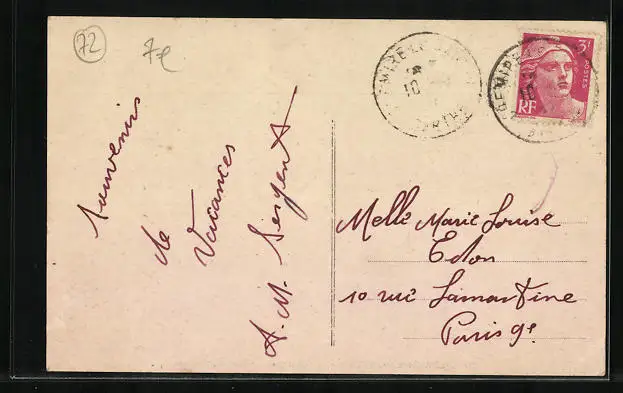 72
7e
Souvenirs
de
Vacances
A. M. Sergent
3F
POSTES
RF
10
Melle Marie Louise
Edon
10 rue Lamartine
Paris 9e